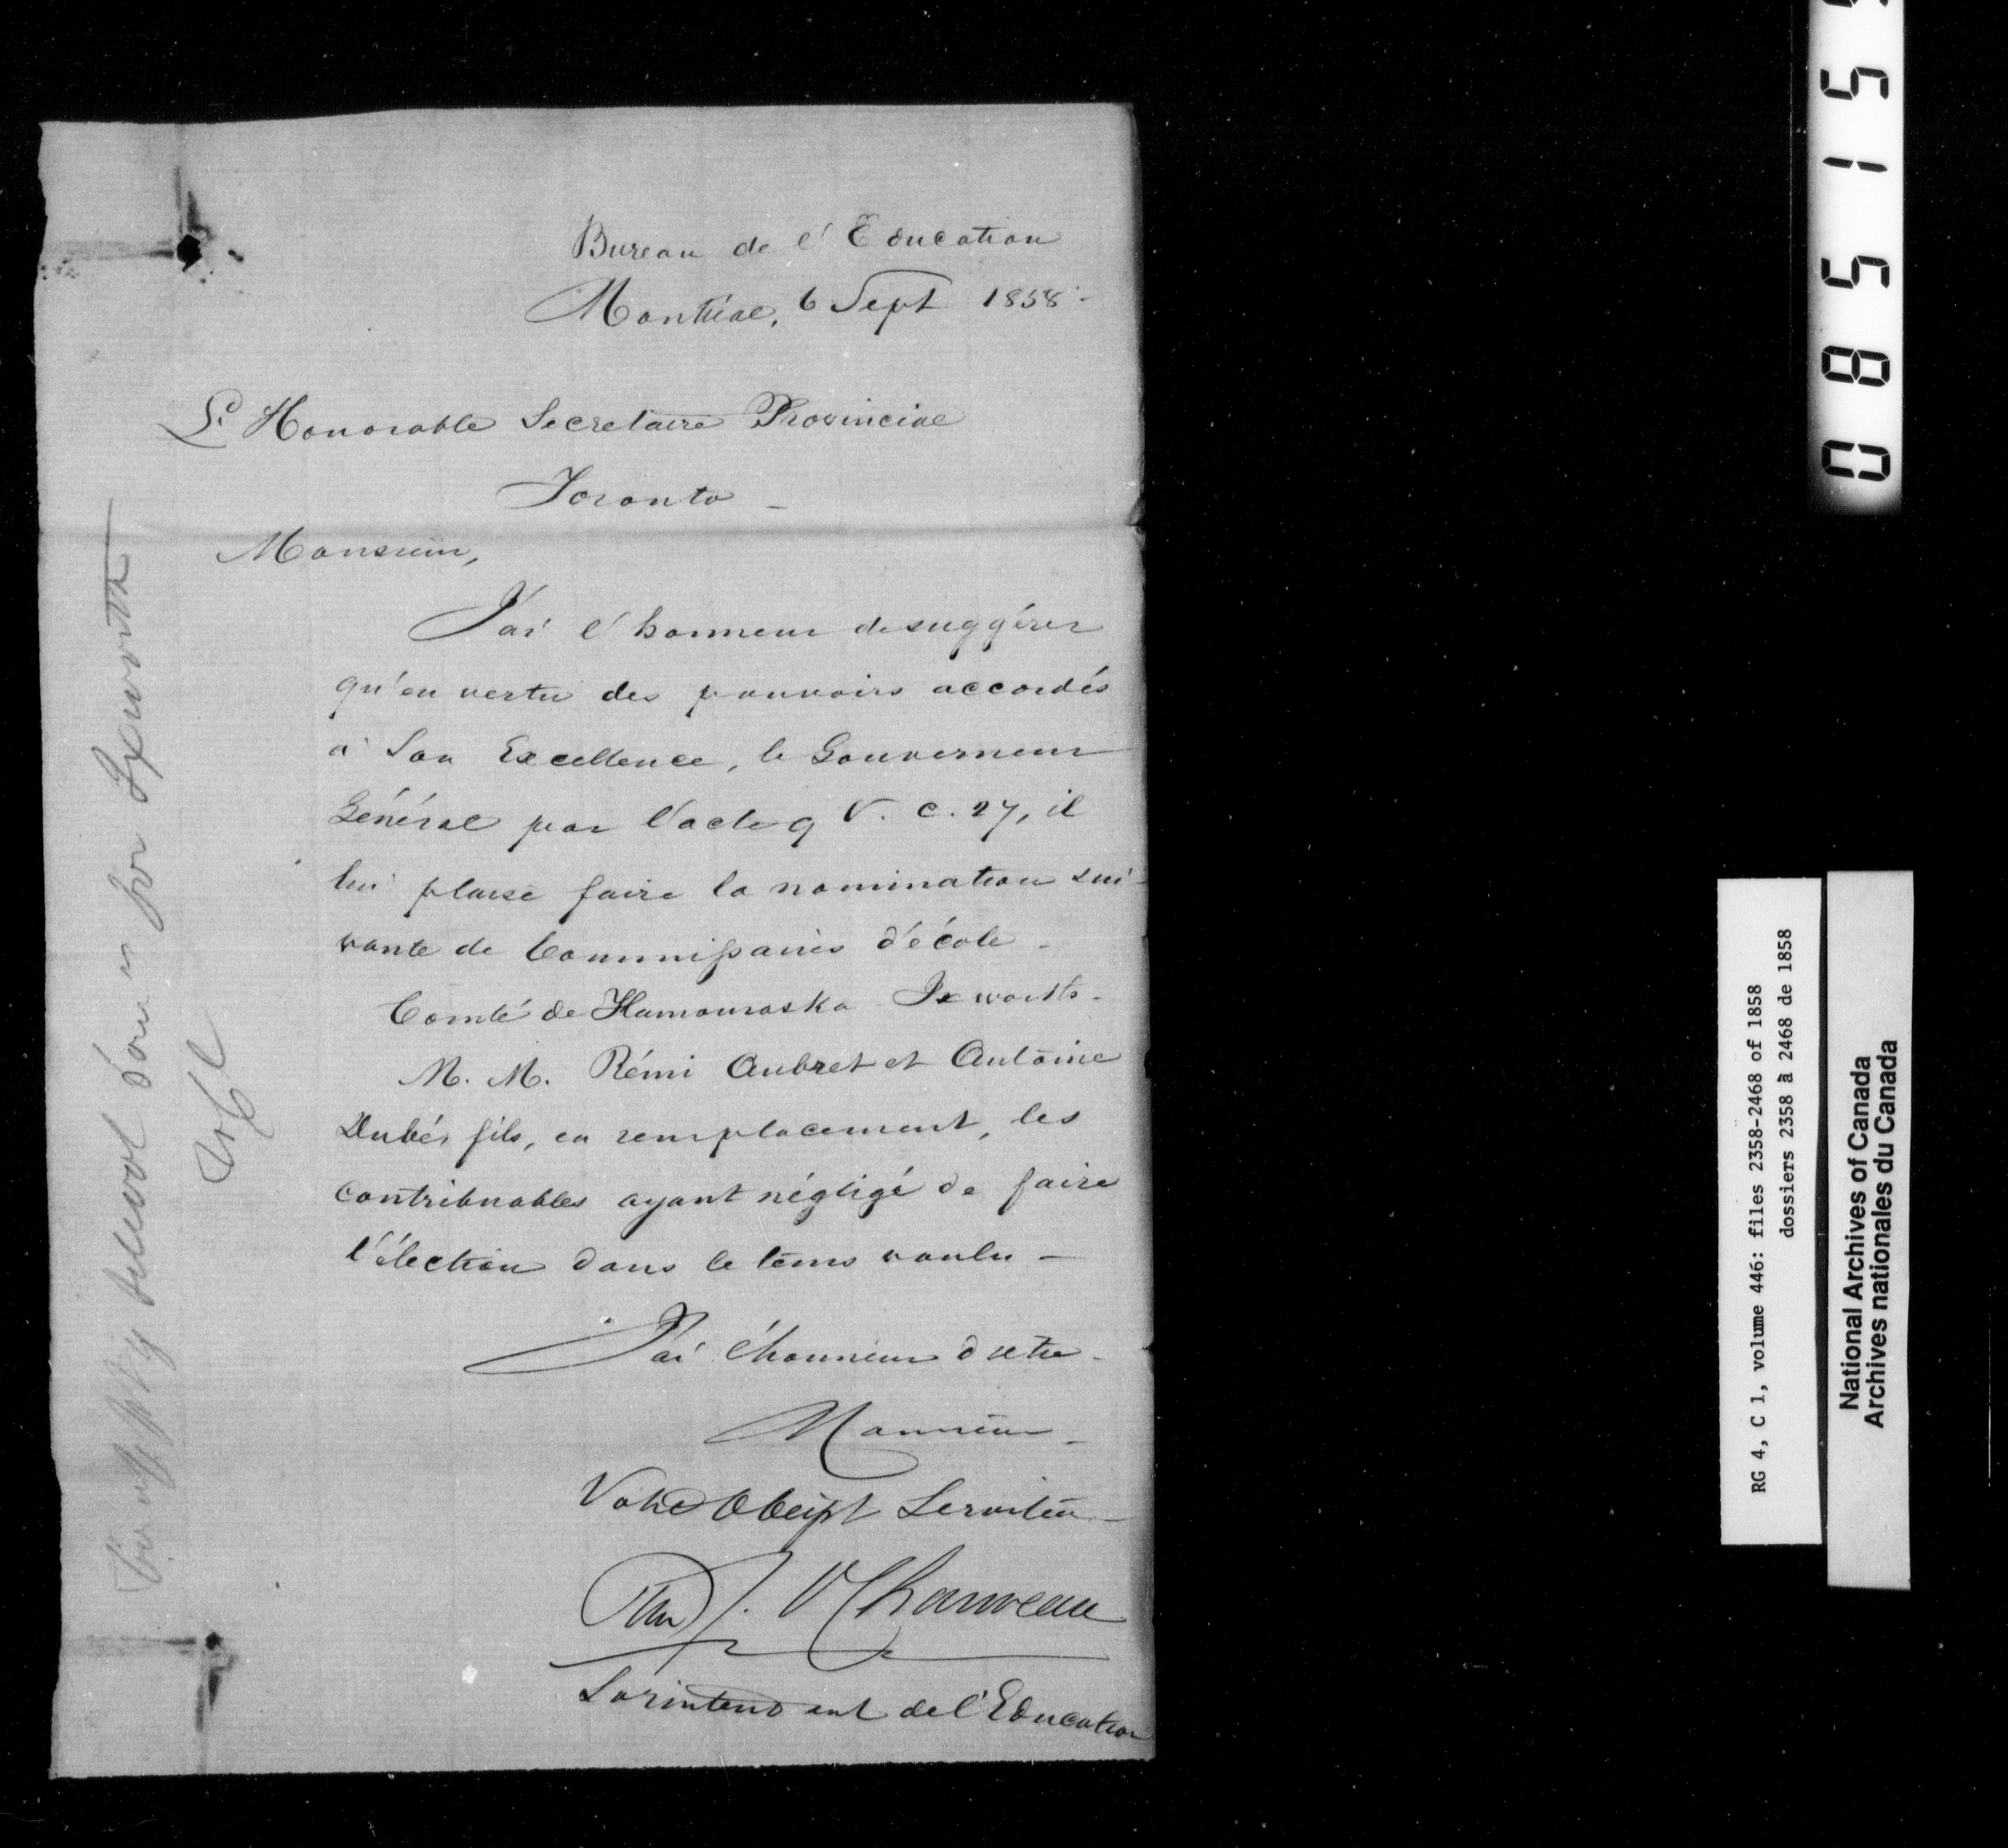 Bureau de l'Education
Montréal, 6 Sept 1858 -
L'Honorable Secretaire Provincial
Toronto -
Monsieur,
J'ai l'honneur de suggérer
qu'en vertu des pouvoirs accordés
à Son Excellence, le Gouverneur
Général par l'acte 9 V. c. 27, il
lui plaise faire la nomination sui-
vante de Commissaires d'école -
Comté de Kamouraska Ixworth -
M. M. Rémi Aubret et Antoine
Dubés fils, en remplacement, les
contribuables ayant négligé de faire
l'élection dans le tems voulu -
J'ai l'honneur d'etre -
Monsieur -
Votre Obeisst Serviteur -
Pierre J. O Chauveau
Surintendent de l'Education
school for Ixworth
08515
RG 4, C 1, volume 446: files 2358-2468 of 1858
dossiers 2358 à 2468 de 1858
National Archives of Canada
Archives nationales du Canada